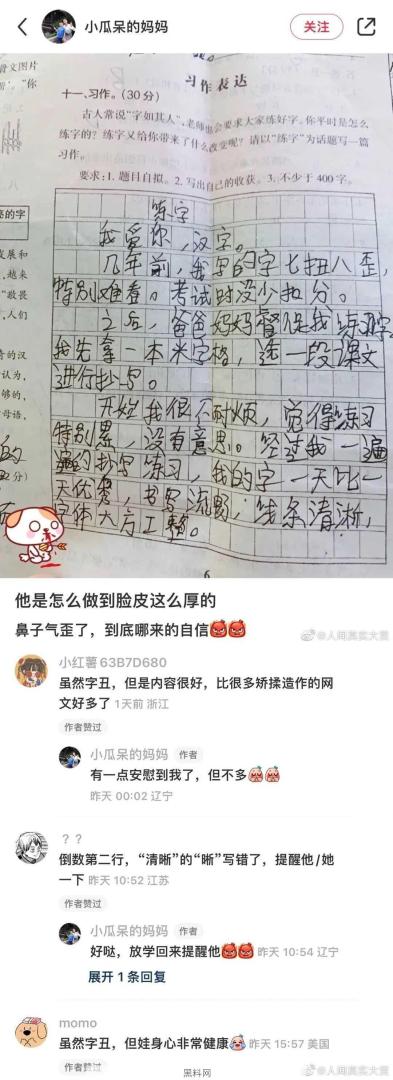 小瓜呆的妈妈
关注
普文图片
习作表达
十一、习作。(30分)
古人常说“字如其人”,老师也会要求大家练好字。你平时是怎么
练字的?练字又给你带来了什么改变呢?请以“练字”为话题写一篇
习作。
要求:1. 题目自拟。2. 写出自己的收获。3. 不少于400字。
练字
我爱你,汉字。
几年前,我写的字七扭八歪,
特别难看。考试时没少扣分。
之后,爸爸妈妈督促我练习字。
我先拿一本米字格,选一段课文
进行抄写。
开始我很不耐烦,觉得练习
特别累,没有意思。经过我一遍
遍的抄写练习,我的字一天比一
天优秀,书写流畅,线条清淅,
字体大方工整。
6
他是怎么做到脸皮这么厚的
鼻子气歪了,到底哪来的自信👹👹
@人间真实大赏
小红薯 63B7D680
虽然字丑,但是内容很好,比很多矫揉造作的网
文好多了 1天前 浙江
作者赞过
小瓜呆的妈妈 作者
有一点安慰到我了,但不多
昨天 00:02 辽宁
??
倒数第二行,“清晰”的“晰”写错了,提醒他/她
一下 昨天 10:52 江苏
作者赞过
小瓜呆的妈妈 作者
好哒,放学回来提醒他👹👹 昨天 10:54 辽宁
展开 1 条回复
momo
虽然字丑,但娃身心非常健康😂 昨天 15:57 美国
作者赞过
黑料网
@人间真实大赏